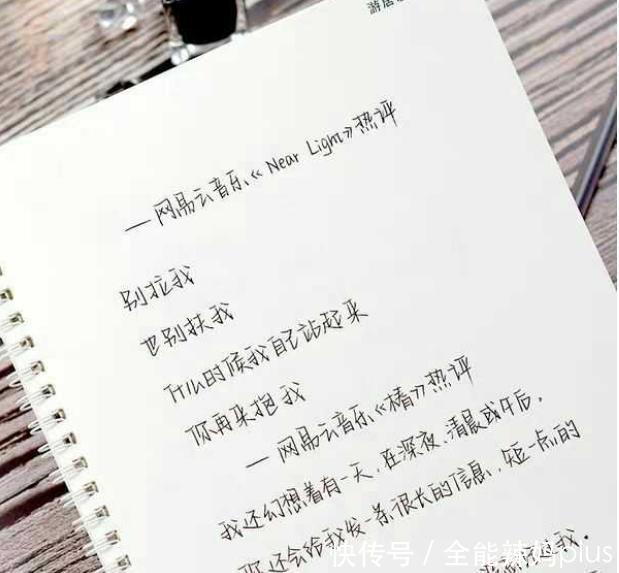 游居
——网易云音乐《Near Light》热评
别拉我
也别扶我
什么时候我自己站起来
你再来抱我
——网易云音乐《椿》热评
我还幻想着有一天,在深夜、清晨或午后,
你还会给我发一条很长的信息,短一点的
我。
快传号 / 全能辣妈plus